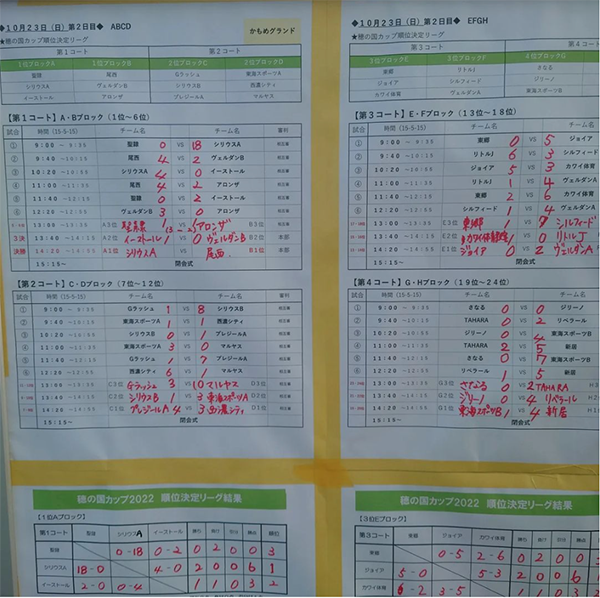 ◆10月23日(日)第2日目◆ ABCD
かもめグランド
★穂の国カップ順位決定リーグ
第1コート 第2コート
1位ブロックA 1位ブロックB 2位ブロックC 2位ブロックD
聖隷 尾西 Gラッシュ 東海スポーツA
シリウスA ヴェルダンB シリウスB 西濃シティ
イーストール アロンザ プレジールA マルヤス
【第1コート】A・Bブロック(1位~6位)
試合 時間(15-5-15) チーム名 チーム名 審判
① 9:00 ~ 9:35 聖隷 0 vs 18 シリウスA
② 9:40 ~10:15 尾西 4 vs 2 ヴェルダンB
③ 10:20 ~10:55 シリウスA 4 vs 0 イーストール
④ 11:00 ~11:35 尾西 4 vs 2 アロンザ
⑤ 11:40 ~12:15 聖隷 0 vs 2 イーストール
⑥ 12:20 ~12:55 ヴェルダンB 3 vs 0 アロンザ
13:00 ~13:35 A3位 聖隷 1 アロンザ B3位
3決 13:40 ~14:15 A2位 イーストール 1 vs 0 ヴェルダンB B2位 本部
決勝 14:20 ~14:55 A1位 シリウスA 尾西 B1位 本部
15:15~ 閉会式
【第2コート】C・Dブロック(7位~12位)
試合 時間(15-5-15) チーム名 チーム名 審判
① 9:00 ~ 9:35 Gラッシュ 1 vs 8 シリウスB
② 9:40 ~10:15 東海スポーツA 1 vs 1 西濃シティ
③ 10:20 ~10:55 シリウスB 0 vs 1 プレジールA
④ 11:00 ~11:35 東海スポーツA 3 vs 0 マルヤス
⑤ 11:40 ~12:15 Gラッシュ 1 vs 7 プレジールA
⑥ 12:20 ~12:55 西濃シティ 6 vs 1 マルヤス
13:00 ~13:35 C3位 Gラッシュ 3 vs 10 マルヤス D3位
13:40 ~14:15 C2位 シリウスB 1 vs 3 東海スポーツA D2位
14:20 ~14:55 C1位 プレジールA 4 vs 3 西濃シティ D1位
15:15~ 閉会式
穂の国カップ2022 順位決定リーグ結果
【1位Aブロック】
第1コート 聖隷 シリウスA イーストール 勝ち 負け 引分 勝点 順位
聖隷 0-18 0-2 0 2 0 0 3
シリウスA 18-0 4-0 2 0 0 6 1
イーストール 2-0 0-4 1 1 0 3 2
◆10月23日(日)第2日目◆ EFGH
★穂の国カップ順位決定リーグ
第3コート 第4
3位ブロックE 3位ブロックF 4位ブロックG
東郷 リトルJ さなる
ジョイア シルフィード ジリーノ
カワイ体育 ヴェルダンA 東海スポーツB
【第3コート】E・Fブロック(13位~18位)
試合 時間(15-5-15) チーム名 チーム名
① 9:00 ~ 9:35 東郷 0 vs 5 ジョイア
② 9:40 ~10:15 リトルJ 6 vs 3 シルフィード
③ 10:20 ~10:55 ジョイア 5 vs 3 カワイ体育
④ 11:00 ~11:35 リトルJ 1 vs 4 ヴェルダンA
⑤ 11:40 ~12:15 東郷 2 vs 6 カワイ体育
⑥ 12:20 ~12:55 シルフィード 1 vs 4 ヴェルダンA
13:00 ~13:35 E3位 東郷 1 vs 9 シルフィード
13:40 ~14:15 E2位 カワイ体育 1 vs 0 リトルJ
14:20 ~14:55 E1位 ジョイア 0 vs 2 ヴェルダンA
15:15~ 閉会式
【第4コート】G・Hブロック(19位~24位)
試合 時間(15-5-15) チーム名 チーム名
① 9:00 ~ 9:35 さなる 0 vs 0 ジリーノ
② 9:40 ~10:15 TAHARA 0 vs 2 リベラール
③ 10:20 ~10:55 ジリーノ 0 vs 4 東海スポーツB
④ 11:00 ~11:35 TAHARA 2 vs 5 新居
⑤ 11:40 ~12:15 さなる 0 vs 7 東海スポーツB
⑥ 12:20 ~12:55 リベラール 1 vs 5 新居
13:00 ~13:35 G3位 さなる 0 vs 2 TAHARA
13:40 ~14:15 G2位 ジリーノ 0 vs 4 リベラール
14:20 ~14:55 G1位 東海スポーツB 1 vs 4 新居
15:15~ 閉会式
穂の国カップ2022 順位決定リーグ結果
【3位Eブロック】
第3コート 東郷 ジョイア カワイ体育 勝ち 負け 引分 勝点
東郷 0-5 2-6 0 2 0 0
ジョイア 5-0 5-3 2 0 0 6
カワイ体育 6-2 3-5 1 1 0 3